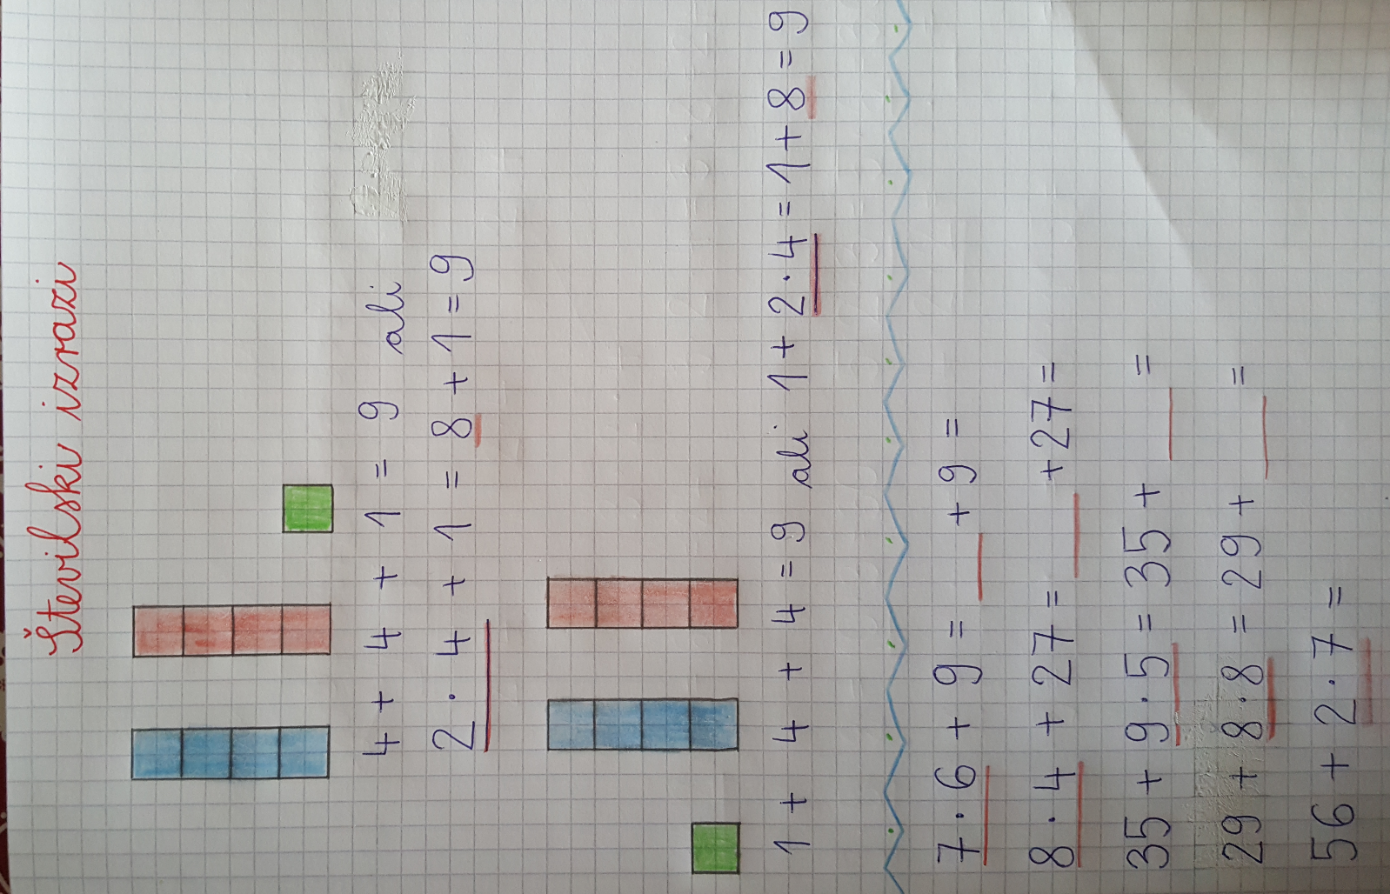 Številski izrazi
4 + 4 + 1 = 9 ali
2 · 4 + 1 = 8 + 1 = 9
1 + 4 + 4 = 9 ali 1 + 2 · 4 = 1 + 8 = 9
7 · 6 + 9 = ___ + 9 =
8 · 4 + 27 = ___ + 27 =
35 + 9 · 5 = 35 + ___ =
29 + 8 · 8 = 29 + ___ =
56 + 2 · 7 =